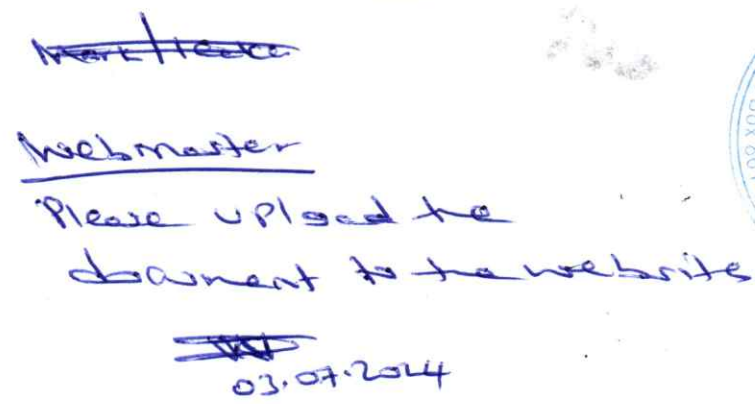 Webmaster
Please upload the
document to the website
03.07.2024
BOX 601